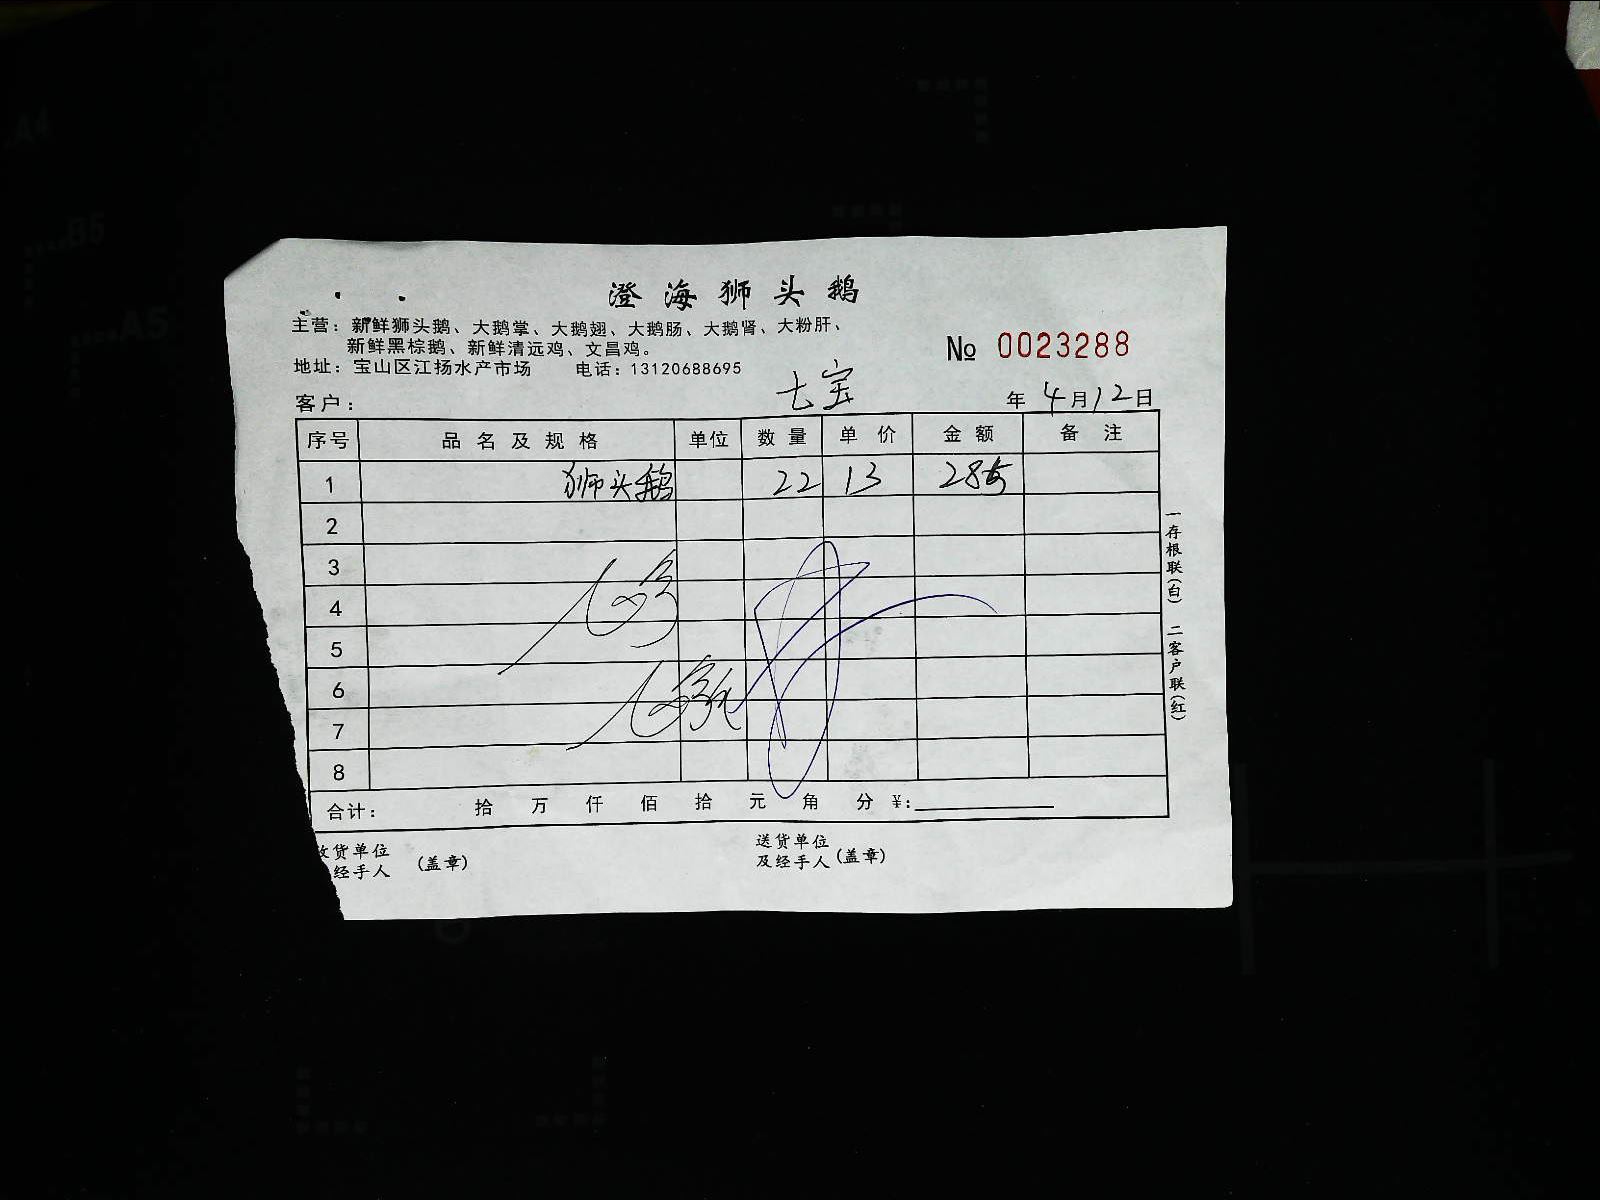 澄海狮头鹅
主营：新鲜狮头鹅、大鹅掌、大鹅翅、大鹅肠、大鹅肾、大粉肝、
新鲜黑棕鹅、新鲜清远鸡、文昌鸡。
№ 0023288
地址：宝山区江扬水产市场 电话：13120688695
客户： 七宝 年 4月12日
序号 品名及规格 单位 数量 单价 金额 备注
1 狮头鹅 22 13 285
2
3
4
5
6
7
8
合计： 拾 万 仟 佰 拾 元 角 分 ¥:
收货单位
经手人 (盖章)
送货单位
及经手人 (盖章)
一存根联(白) 二客户联(红)
A4
B5
A5